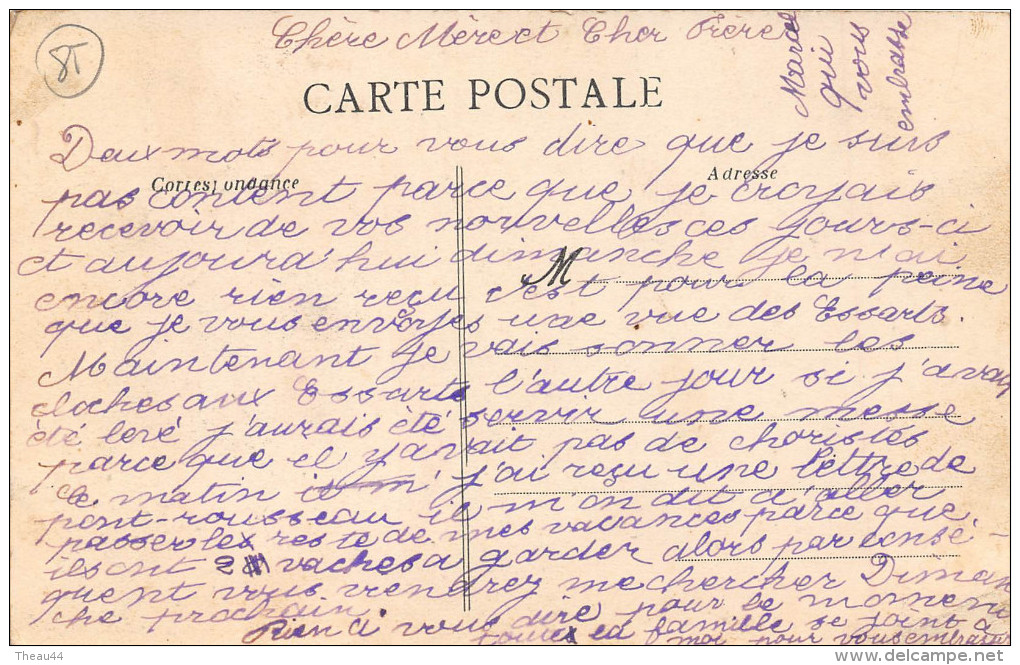 85
Chère Mère et Cher Frère
CARTE POSTALE
Deux mots pour vous dire que je suis
Correspondance
Adresse
pas content parce que je croyais
recevoir de vos nouvelles ces jours-ci
et aujourd'hui dimanche je n'ai
M
encore rien reçu c'est pour la peine
que je vous envoyes une vue des Essarts.
Maintenant je vais sonner les
cloches aux Essarts l'autre jour si j'avais
été levé j'aurais été servir une messe
parce que il y avait pas de choristes
Ce matin j'ai reçu une lettre de
pont-rousseau il m'on dit d'aller
passer lex reste de mes vacances parce que
ils ont 2 vaches a garder alors par consé-
quent vous viendrez me chercher Diman
che prochain.
Rien a vous dire pour le moment
toutex la famille se joint a
moi pour vous embrasser
Marcel
qui
vous
embrasse
Theau44
www.delcampe.net